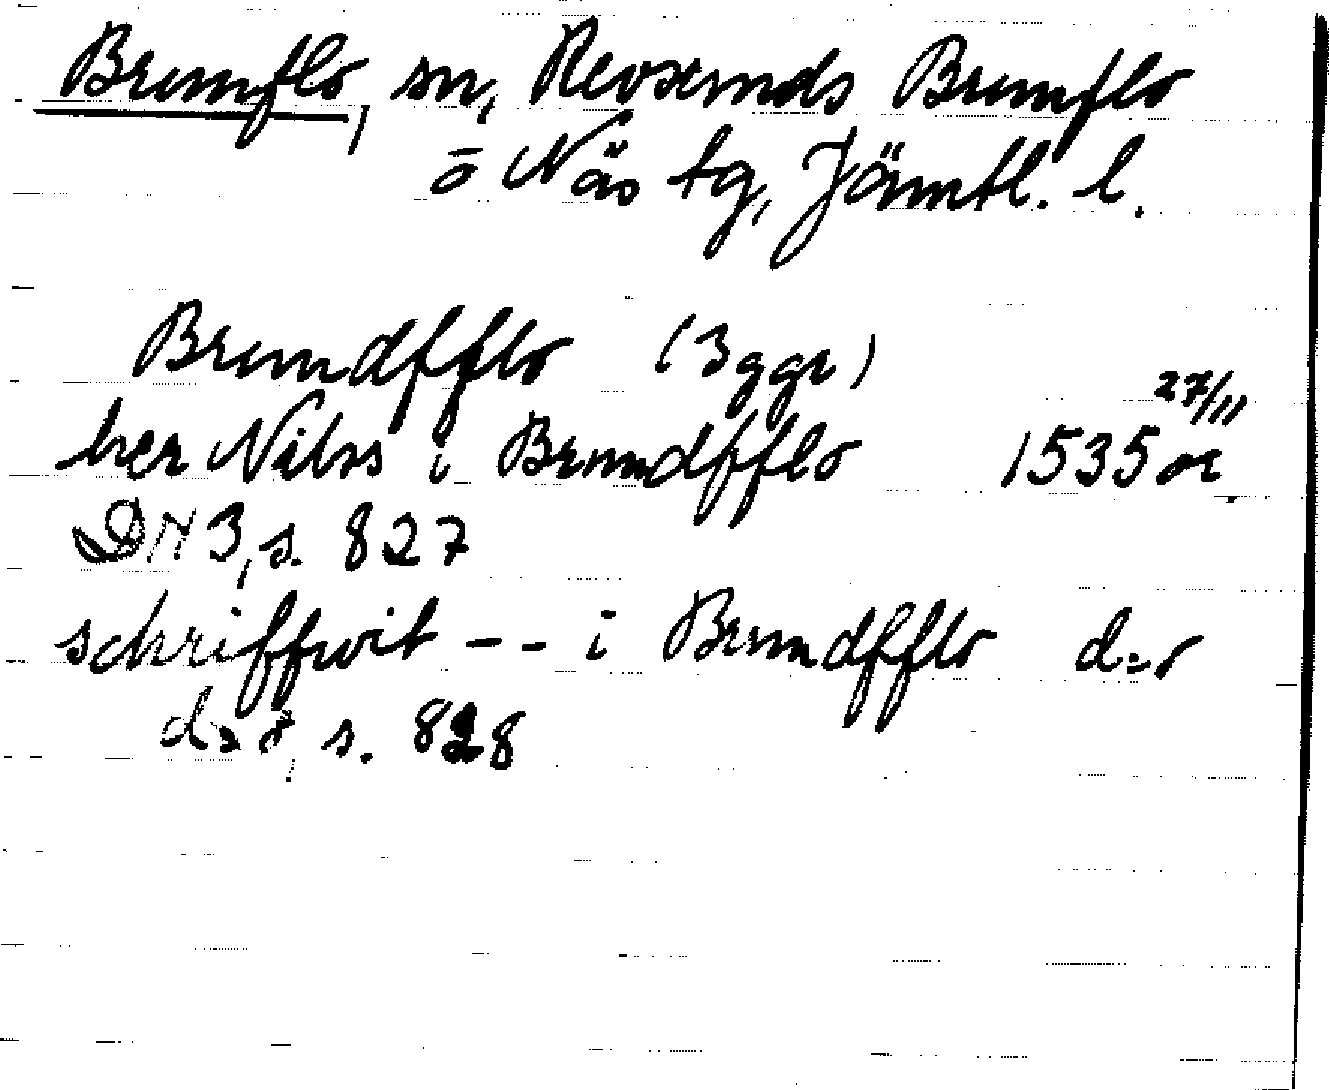 Brunflo, sn, Revsunds Brunflo
o Näs tg, Jämtl. l.
Brundfflo (3 ggr)
her Nilss i Brundfflo 1535 27/11 or.
DN 3, s. 827
schriffwit - - i Brundfflo d:o
d:o, s. 828